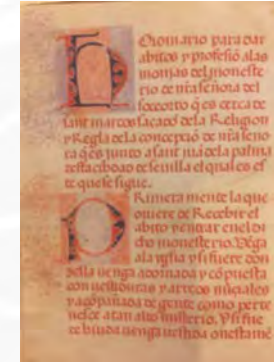 Ordinario para dar
abitos y professió a las
monjas del moneste
rio de nr̃a señora del
socorro q̃ es cerca de
sant marcos sacado dela Religion
y Regla dela concepció de nr̃a seño
ra q̃ es junto a sant juá dela palma
desta cibdad de seuilla el qual es es
te que se sigue.
PRimera mente la que
quiere de Recebir el
abito y entrar en el di
cho monesterio. Vẽga
ala yglia y si fuere don
zella uenga adornada y cõpuesta
con uestiduras y arreos nupciales
y acõpañada de gente como perte
nesce a tan alto misterio. Y si fue
re biuda uenga uestida onestamẽ